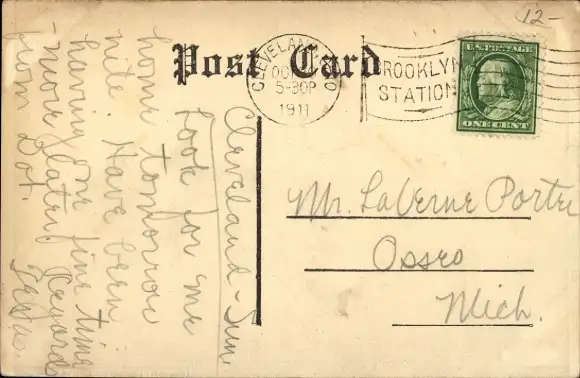 12-
Post Card
CLEVELAND, O
OCT
5-30P
1911
BROOKLYN
STATION
U.S. POSTAGE
ONE CENT
Cleveland - Sun
Look for me
home tomorrow
nite. Have been
having one fine time
more later. Regards
from Dot.
Mr. LaVerne Porter
Osseo
Mich.